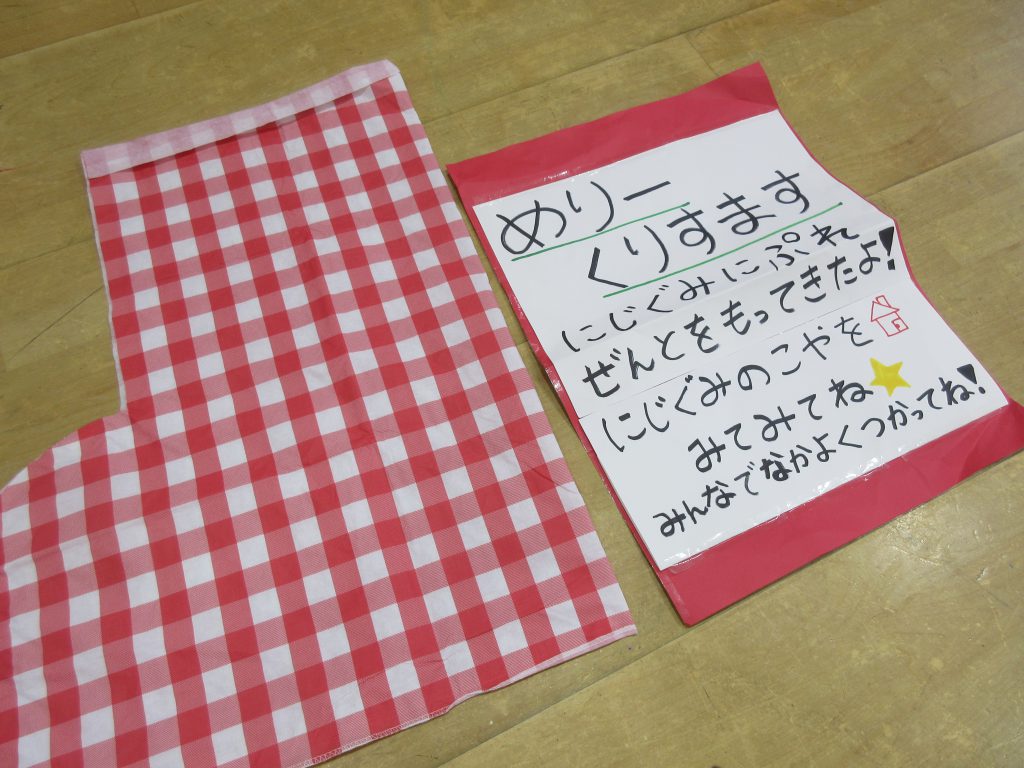 めりー
くりすます
にじぐみにぷれ
ぜんとをもってきたよ!
にじぐみのこやを
みてみてね
みんなでなかよくつかってね!